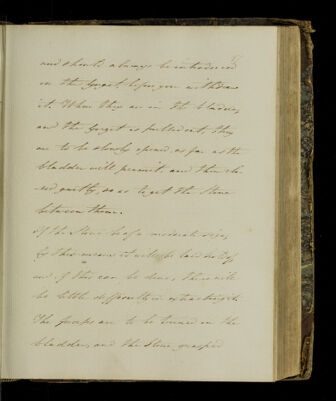 and should always be introduced
on the Gorget, before you withdraw
it. When they are in the bladder,
and the Gorget is pulled out, they
are to be slowly opened, as far as the
bladder will permit, and then clo-
sed gently, so as to get the Stone
between them.
If the Stone be of a moderate size,
by this means it will be laid hold of,
and if this can be done, there will
be little difficulty in extracting it.
The forceps are to be turned in the
bladder, and the Stone grasped